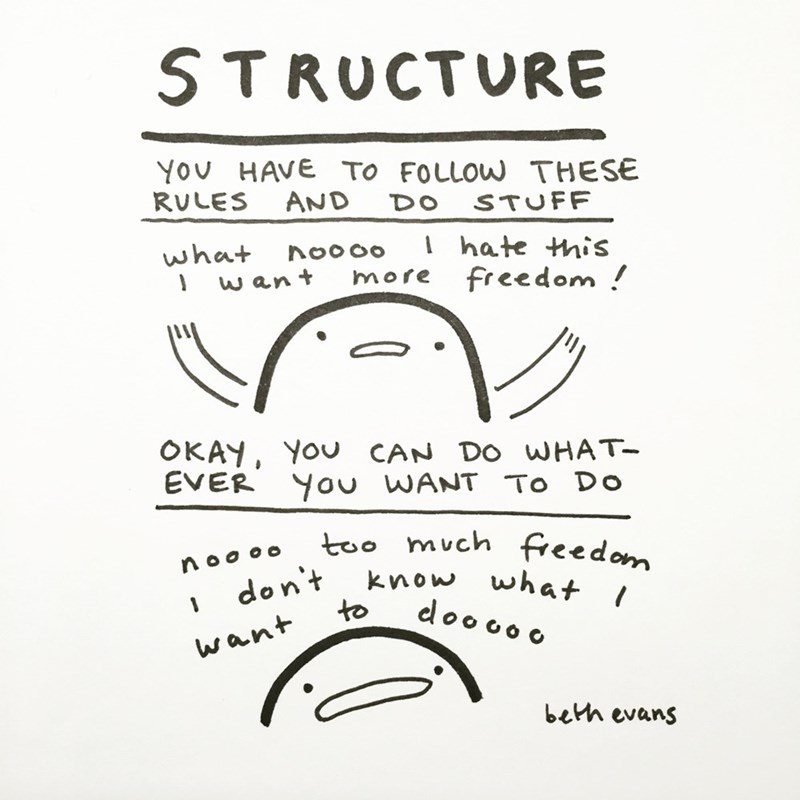 STRUCTURE
YOU HAVE TO FOLLOW THESE
RULES AND DO STUFF
what noooo I hate this
I want more freedom!
OKAY, YOU CAN DO WHAT-
EVER YOU WANT TO DO
noooo too much freedom
I don't know what I
want to dooooo
beth evans